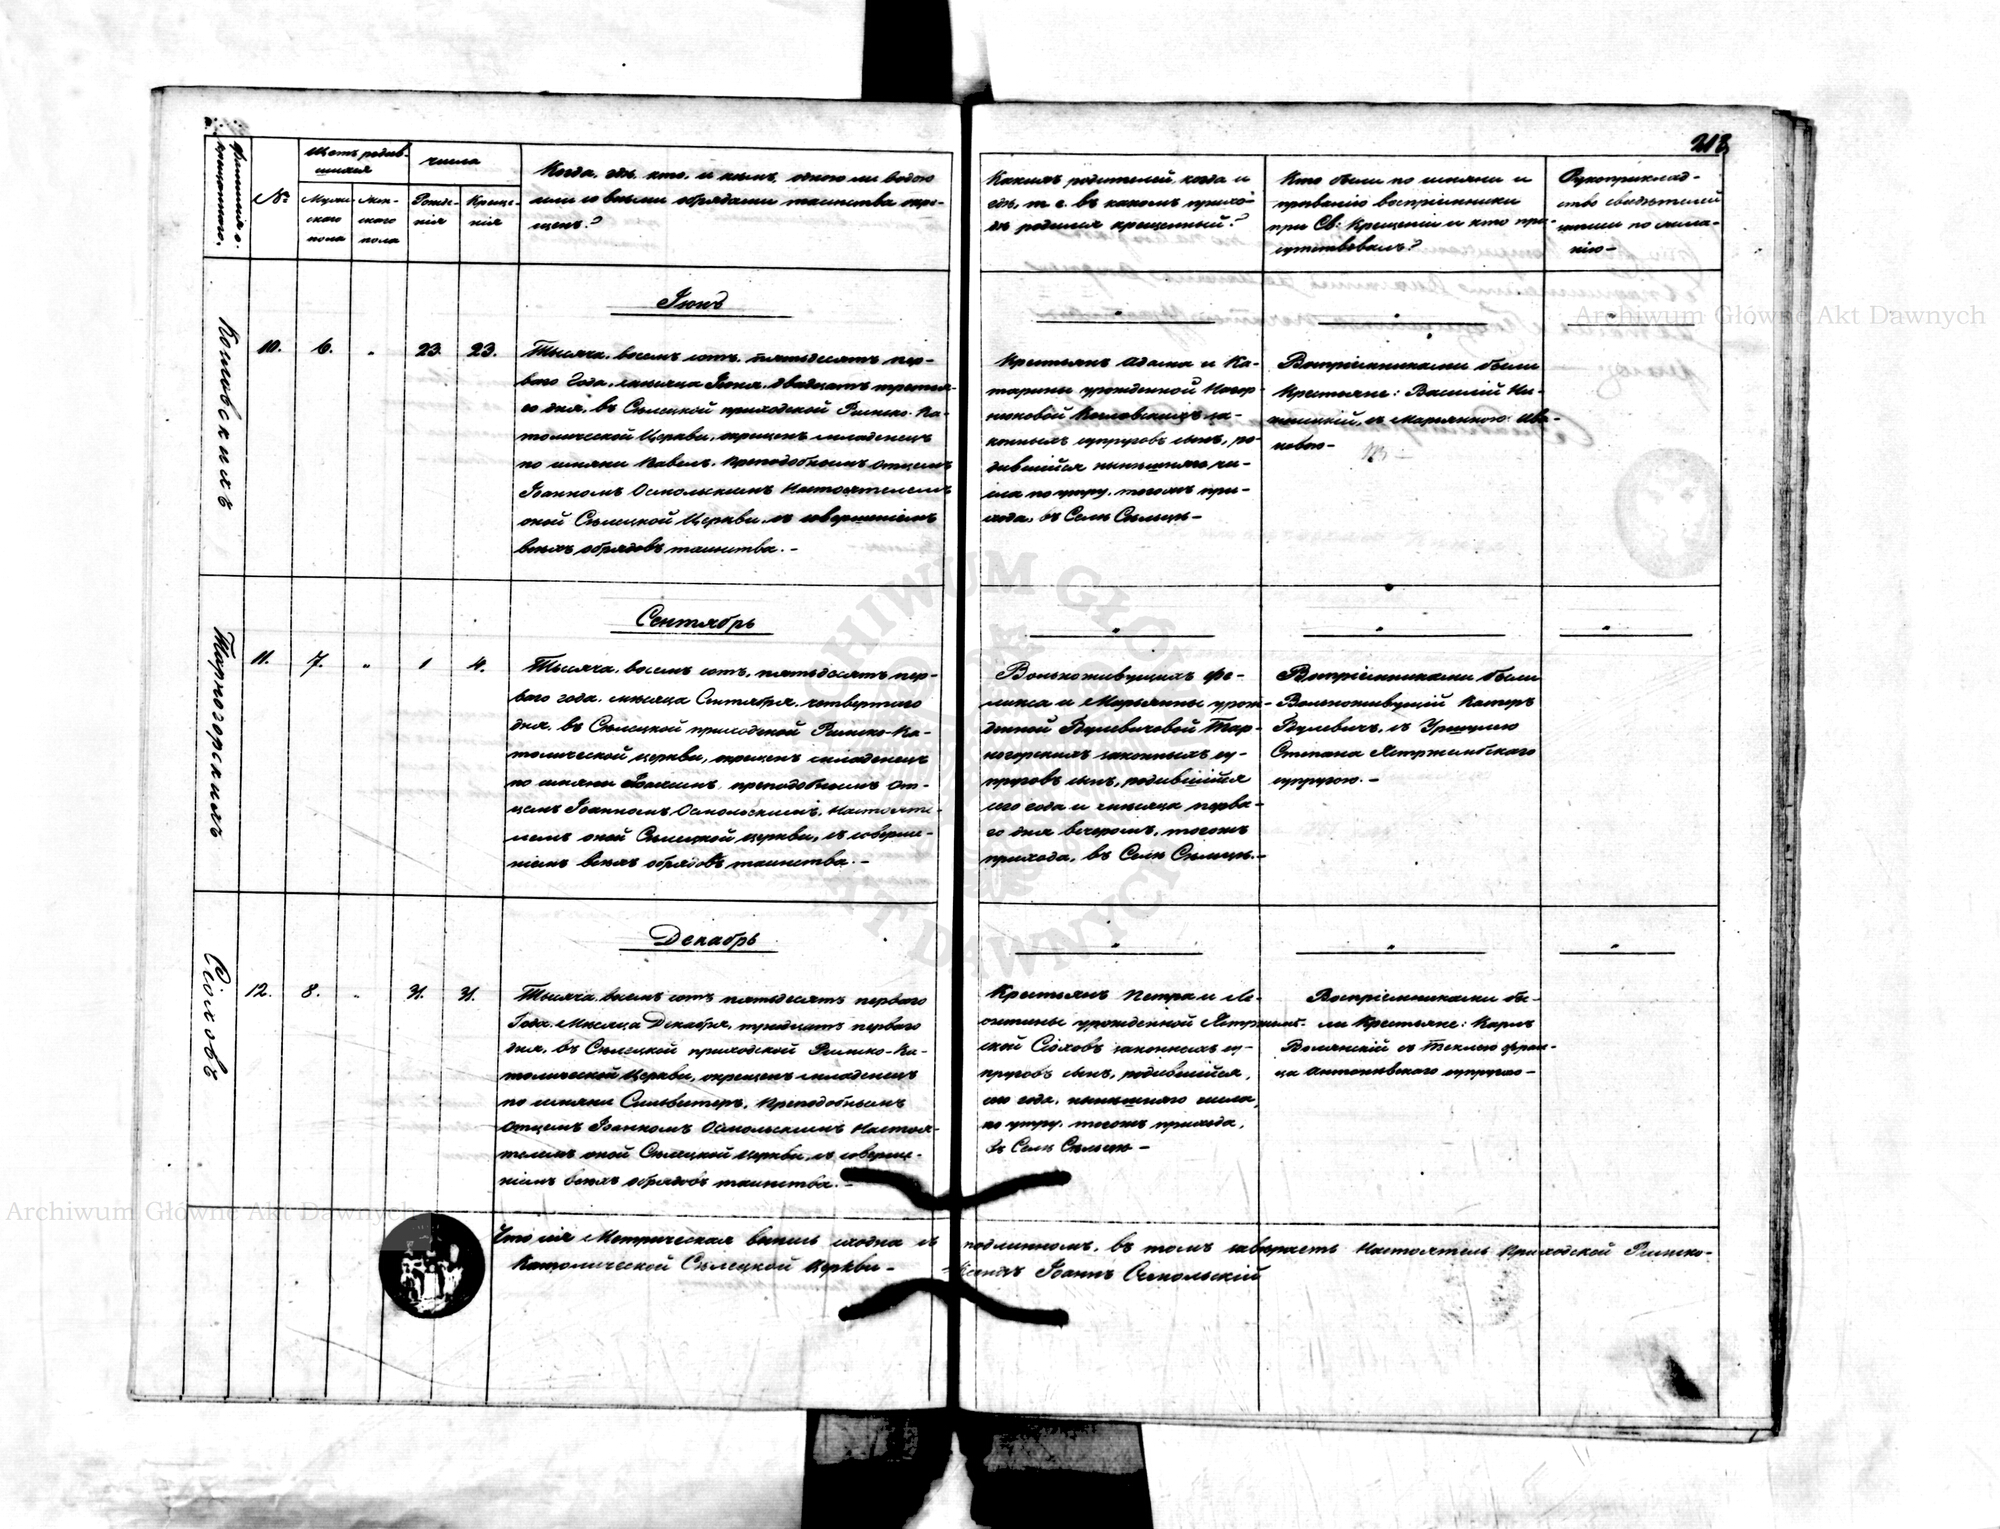 213
Фамилія о-
крещеннаго.
№
Щетъ родив-
шихся
Муже-
скаго
пола
Жен-
скаго
пола
числа
Рожде-
нія
Креще-
нія
Когда, гдѣ, кто, и кѣмъ, одною ли водою
или со всѣми обрядами таинства окре-
щенъ?
Какихъ родителей, когда и
гдѣ, т. е. въ какомъ прихо-
дѣ родился крещенный?
Кто были по имяни и
прозванію воспріемники
при Св: Крещеніи и кто при-
сутствовалъ?
Рукоприклад-
ство свидѣтелей
по жела-
нію —
Козловскихъ
10.
6.
"
23.
23.
Іюнь
Тысяча, восемь сотъ, пятьдесятъ пер-
ваго Года, мѣсяца Іюня, двадцать третья-
го дня, въ Сѣлецкой приходской Римско-Ка-
толической Церкви, окрещенъ младенецъ
по имяни Павелъ, Преподобнымъ Отцемъ
Іоанномъ Осмольскимъ Настоятелемъ
оной Сѣлецкой Церкви, съ совершеніемъ
всѣхъ обрядовъ таинства. —
"
Крестьянъ Адама и Ка-
тарины урожденной
Козловскихъ за-
конныхъ супруговъ сынъ, ро-
дившійся нынѣшняго чи-
сла по утру, тогожъ при-
хода, въ Селѣ Сѣльцѣ —
"
Воспріемниками были
Крестьяне: Василій
съ Марьянною Ива-
новою —
"
Тарногорскихъ
11.
7.
"
1
4.
Сентябрь
Тысяча, восемь сотъ, пятьдесятъ пер-
ваго года, мѣсяца Сентября, четвертаго
дня, въ Сѣлецкой приходской Римско-Ка-
толической церкви, окрещенъ младенецъ
по имяни преподобнымъ От-
цемъ Іоанномъ Осмольскимъ, Настояте-
лемъ оной Сѣлецкой церкви, съ соверше-
ніемъ всѣхъ обрядовъ таинства. —
"
Вольноживущихъ Фе-
ликса и Марьянны урож-
денной Булевичовой Тар-
ногорскихъ законныхъ су-
пруговъ сынъ, родившійся
сего года и мѣсяца перва-
го дня вечеромъ, тогожъ
прихода, въ Селѣ Сѣльцѣ. —
"
Воспріемниками были
Вольноживущій
Булевичъ, съ Уршулею
Степана Ястржембскаго
супругою. —
"
Сіоховъ
12.
8.
"
31.
31.
Декабрь
Тысяча, восемь сотъ пятьдесятъ перваго
Года, Мѣсяца Декабря, тридцать перваго
дня, въ Сѣлецкой приходской Римско-Ка-
толической Церкви, окрещенъ младенецъ
по имяни Сильвестеръ, Преподобнымъ
Отцемъ Іоанномъ Осмольскимъ Настоя-
телемъ оной Сѣлецкой церкви, съ соверше-
ніемъ всѣхъ обрядовъ таинства. —
"
Крестьянъ Петра и Ле-
онтины урожденной Ястржемб-
ской Сіоховъ законныхъ су-
пруговъ сынъ, родившійся,
сего года, нынѣшняго числа,
по утру, тогожъ прихода,
въ Селѣ Сѣльцѣ —
"
Воспріемниками бы-
ли Крестьяне: Карлъ
Волянскій съ Теклею Фран-
ца Антоневскаго супругою —
"
Что сія Метрическая выпись сходна съ подлинномъ, въ томъ завѣряетъ Настоятель Приходской Римско-
Католической Сѣлецкой Церкви — Ксендзъ Іоаннъ Осмольскій
Archiwum Główne Akt Dawnych
Archiwum Główne Akt Dawnych